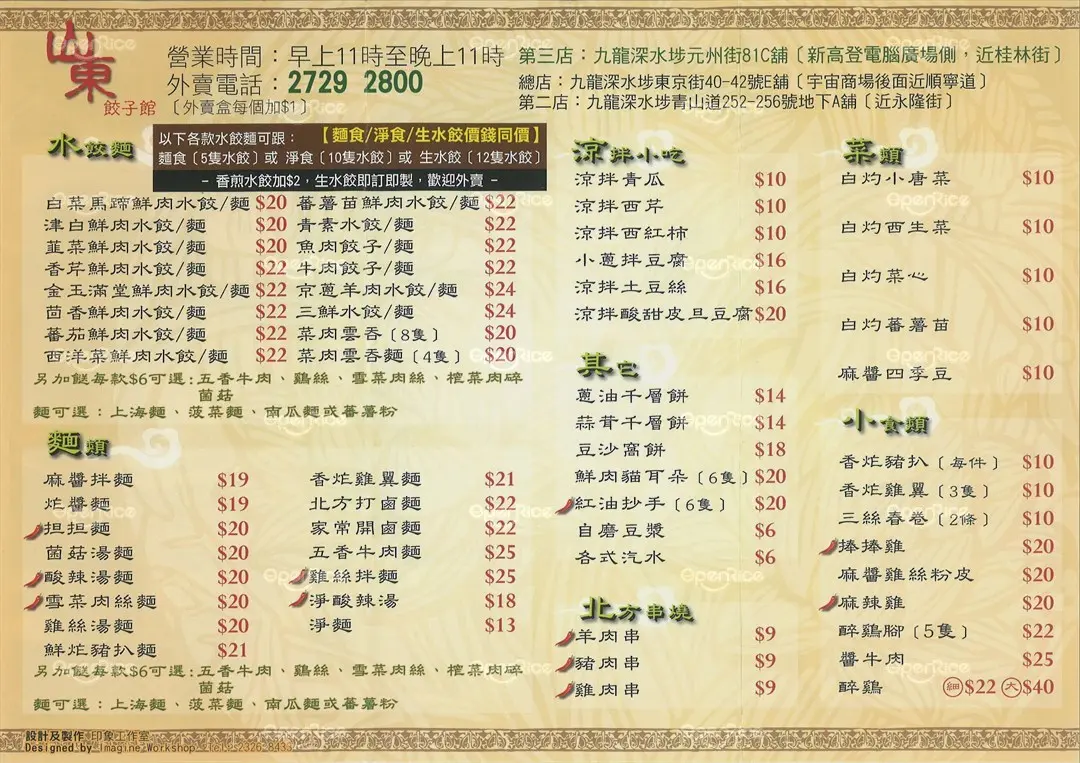 山東
餃子館
營業時間：早上11時至晚上11時
外賣電話：2729 2800
〔外賣盒每個加$1〕
第三店：九龍深水埗元州街81C舖〔新高登電腦廣場側，近桂林街〕
總店：九龍深水埗東京街40-42號E舖〔宇宙商場後面近順寧道〕
第二店：九龍深水埗青山道252-256號地下A舖〔近永隆街〕
水餃麵
以下各款水餃麵可跟：【麵食/淨食/生水餃價錢同價】
麵食〔5隻水餃〕或 淨食〔10隻水餃〕或 生水餃〔12隻水餃〕
- 香煎水餃加$2，生水餃即訂即製，歡迎外賣 -
白菜馬蹄鮮肉水餃/麵 $20
津白鮮肉水餃/麵 $20
韮菜鮮肉水餃/麵 $20
香芹鮮肉水餃/麵 $22
金玉滿堂鮮肉水餃/麵 $22
茴香鮮肉水餃/麵 $22
蕃茄鮮肉水餃/麵 $22
西洋菜鮮肉水餃/麵 $22
蕃薯苗鮮肉水餃/麵 $22
青素水餃/麵 $22
魚肉餃子/麵 $22
牛肉餃子/麵 $22
京蔥羊肉水餃/麵 $24
三鮮水餃/麵 $24
菜肉雲吞〔8隻〕 $20
菜肉雲吞麵〔4隻〕 $20
另加餸每款$6可選：五香牛肉、鷄絲、雪菜肉絲、榨菜肉碎
菌菇
麵可選：上海麵、菠菜麵、南瓜麵或蕃薯粉
麵類
麻醬拌麵 $19
炸醬麵 $19
担担麵 $20
菌菇湯麵 $20
酸辣湯麵 $20
雪菜肉絲麵 $20
雞絲湯麵 $20
鮮炸豬扒麵 $21
香炸雞翼麵 $21
北方打鹵麵 $22
家常開鹵麵 $22
五香牛肉麵 $25
雞絲拌麵 $25
淨酸辣湯 $18
淨麵 $13
另加餸每款$6可選：五香牛肉、鷄絲、雪菜肉絲、榨菜肉碎
菌菇
麵可選：上海麵、菠菜麵、南瓜麵或蕃薯粉
涼拌小吃
涼拌青瓜 $10
涼拌西芹 $10
涼拌西紅柿 $10
小蔥拌豆腐 $16
涼拌土豆絲 $16
涼拌酸甜皮旦豆腐 $20
其它
蔥油千層餅 $14
蒜茸千層餅 $14
豆沙窩餅 $18
鮮肉貓耳朵〔6隻〕 $20
紅油抄手〔6隻〕 $20
自磨豆漿 $6
各式汽水 $6
北方串燒
羊肉串 $9
豬肉串 $9
雞肉串 $9
菜類
白灼小唐菜 $10
白灼西生菜 $10
白灼菜心 $10
白灼蕃薯苗 $10
麻醬四季豆 $10
小食類
香炸豬扒〔每件〕 $10
香炸雞翼〔3隻〕 $10
三絲春卷〔2條〕 $10
捧捧雞 $20
麻醬雞絲粉皮 $20
麻辣雞 $20
醉鷄腳〔5隻〕 $22
醬牛肉 $25
醉鷄 細$22 大$40
設計及製作 印象工作室
Designed by Imagine Workshop Tel: 2326 8433
OpenRice